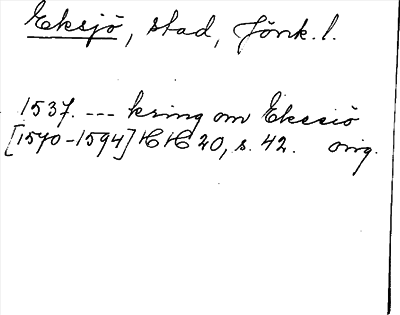 Eksjö, stad, Jönk. l.
1537. --- kring om Ekesiö
[1570-1594] HH 20, s. 42. orig.